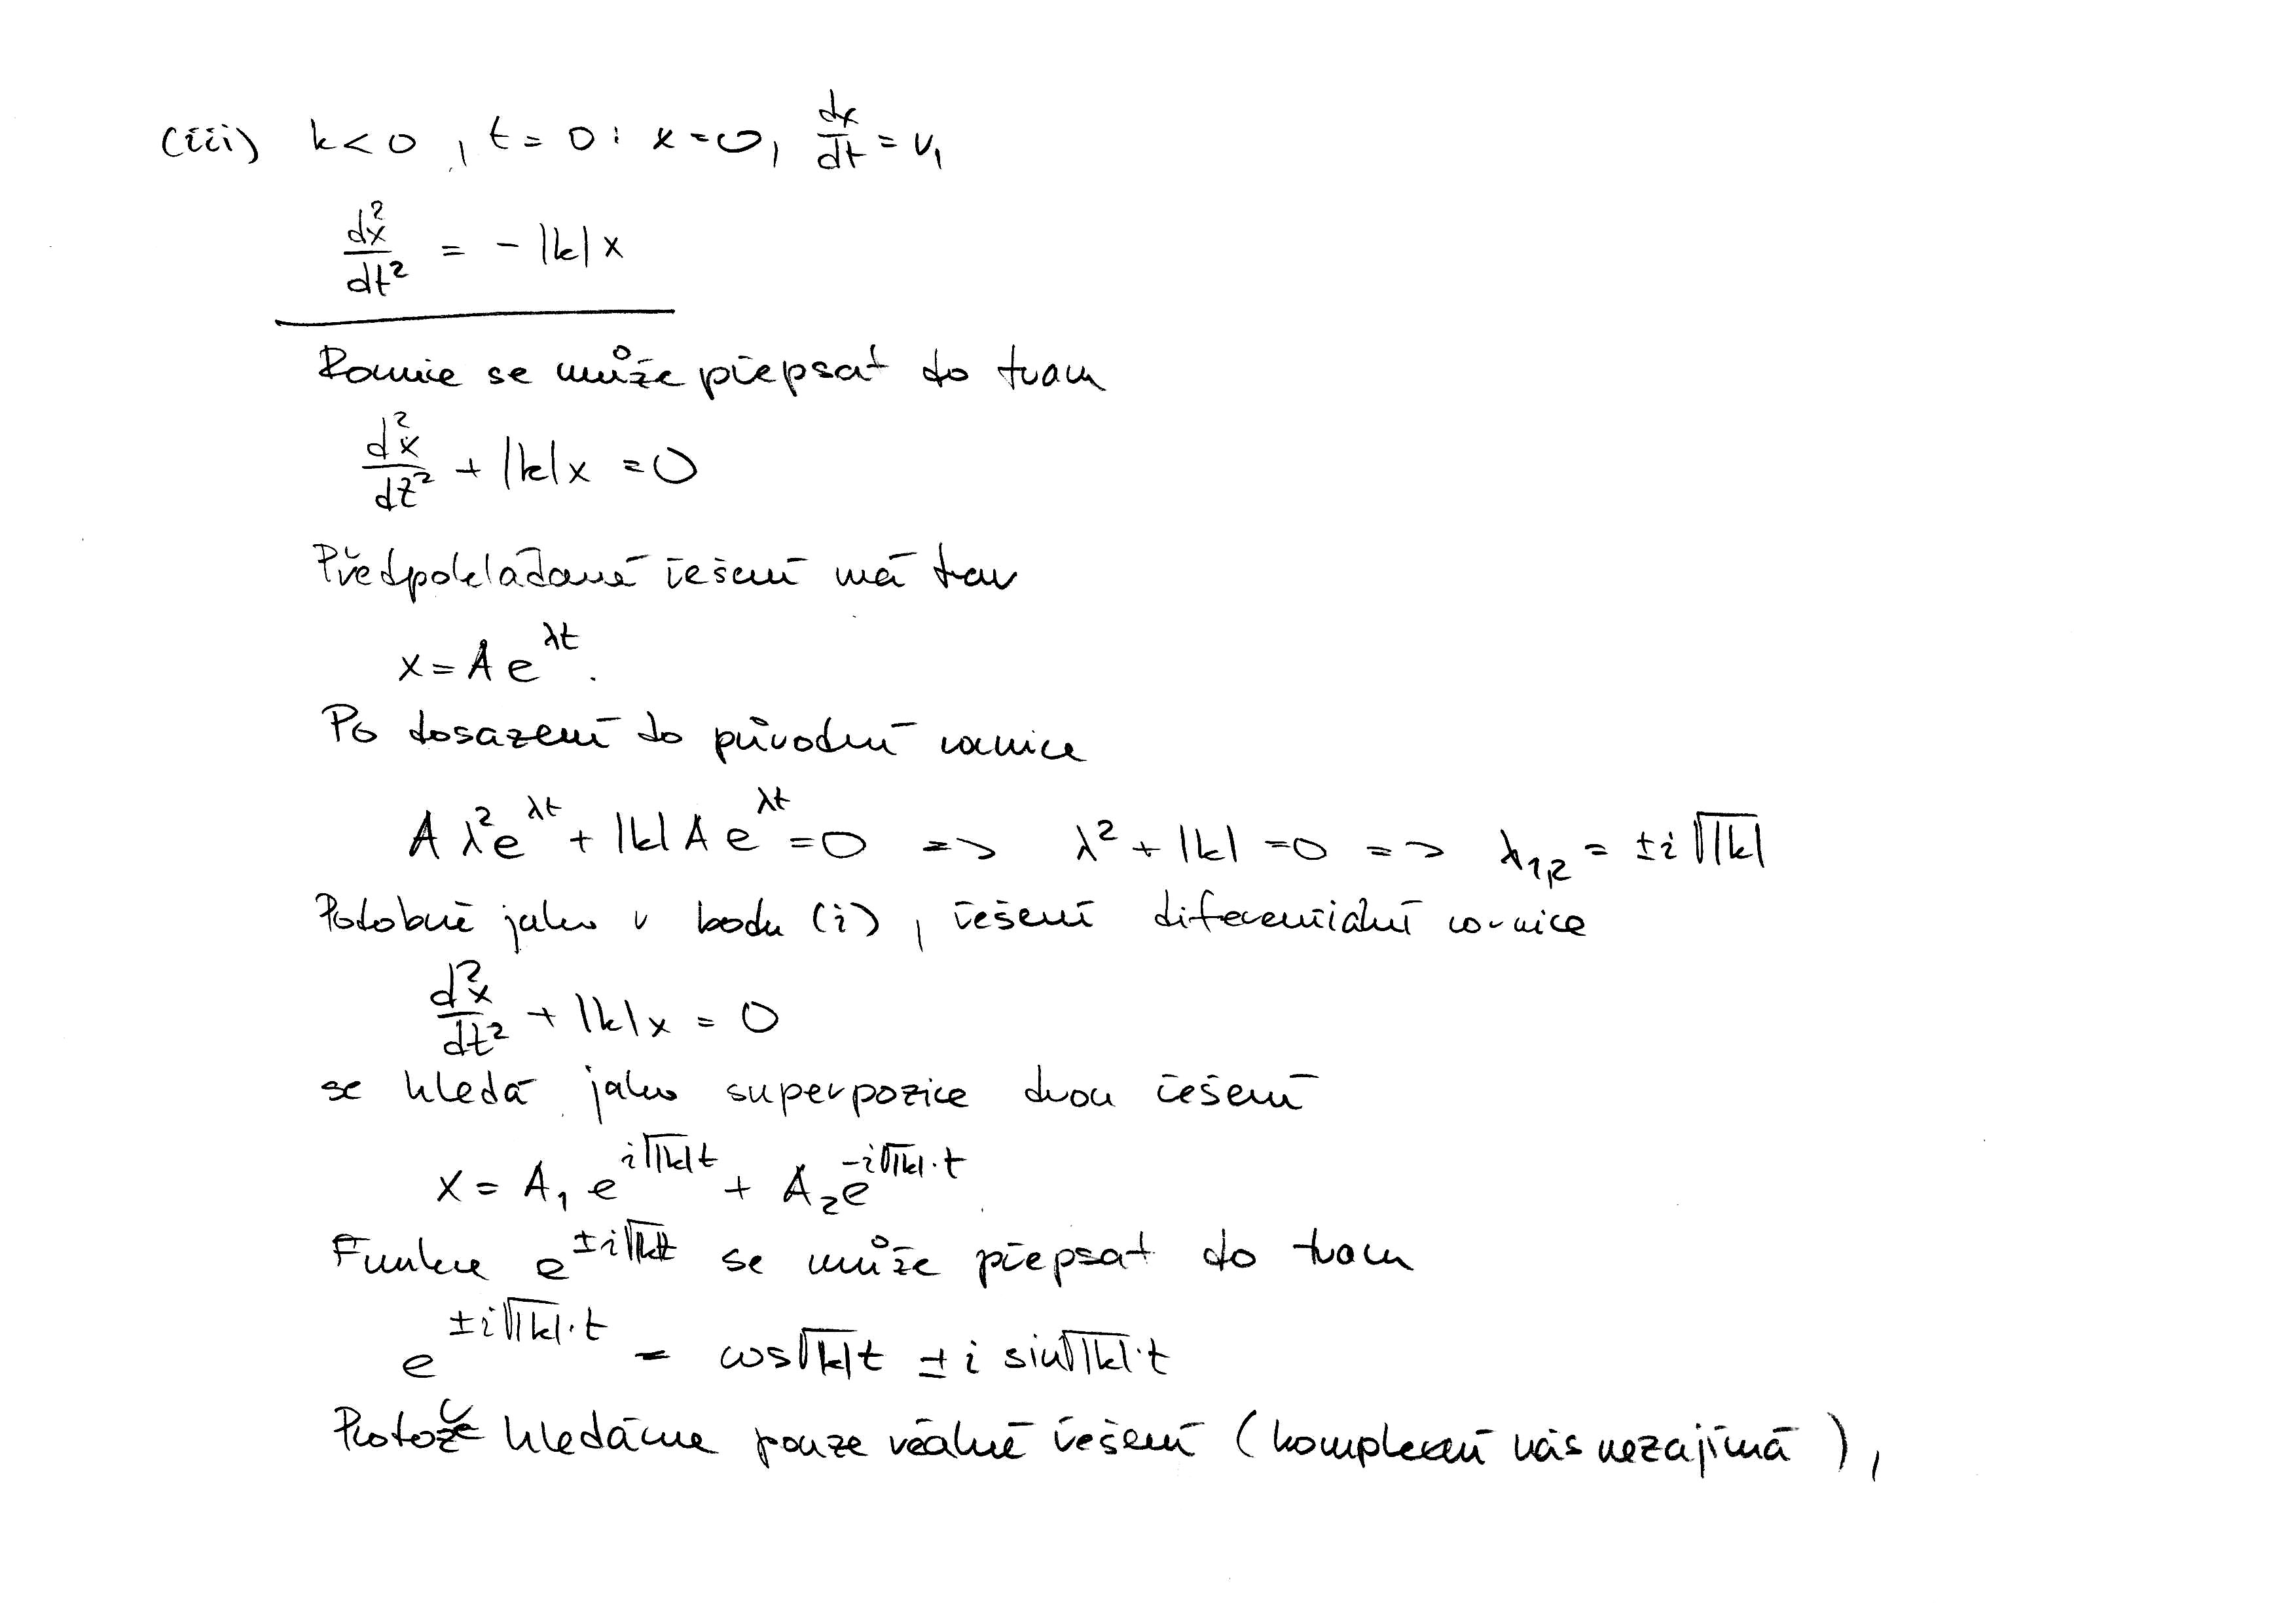 (iii) k<0, t=0: x=0, dx/dt = v₁
d²x/dt² = -|k|x
Rovnice se může přepsat do tvaru
d²x/dt² + |k|x = 0
Předpokládané řešení má tvar
x = A e^{λt}.
Po dosazení do původní rovnice
A λ² e^{λt} + |k| A e^{λt} = 0 => λ² + |k| = 0 => λ₁,₂ = ±i√|k|
Podobně jako v bodu (i), řešení diferenciální rovnice
d²x/dt² + |k|x = 0
se hledá jako superpozice dvou řešení
x = A₁ e^{i√|k|t} + A₂ e^{-i√|k|·t}
Funkce e^{±i√|k|t} se může přepsat do tvaru
e^{±i√|k|·t} = cos√|k|t ± i sin√|k|·t
Protože hledáme pouze reálné řešení (komplexní nás nezajímá),